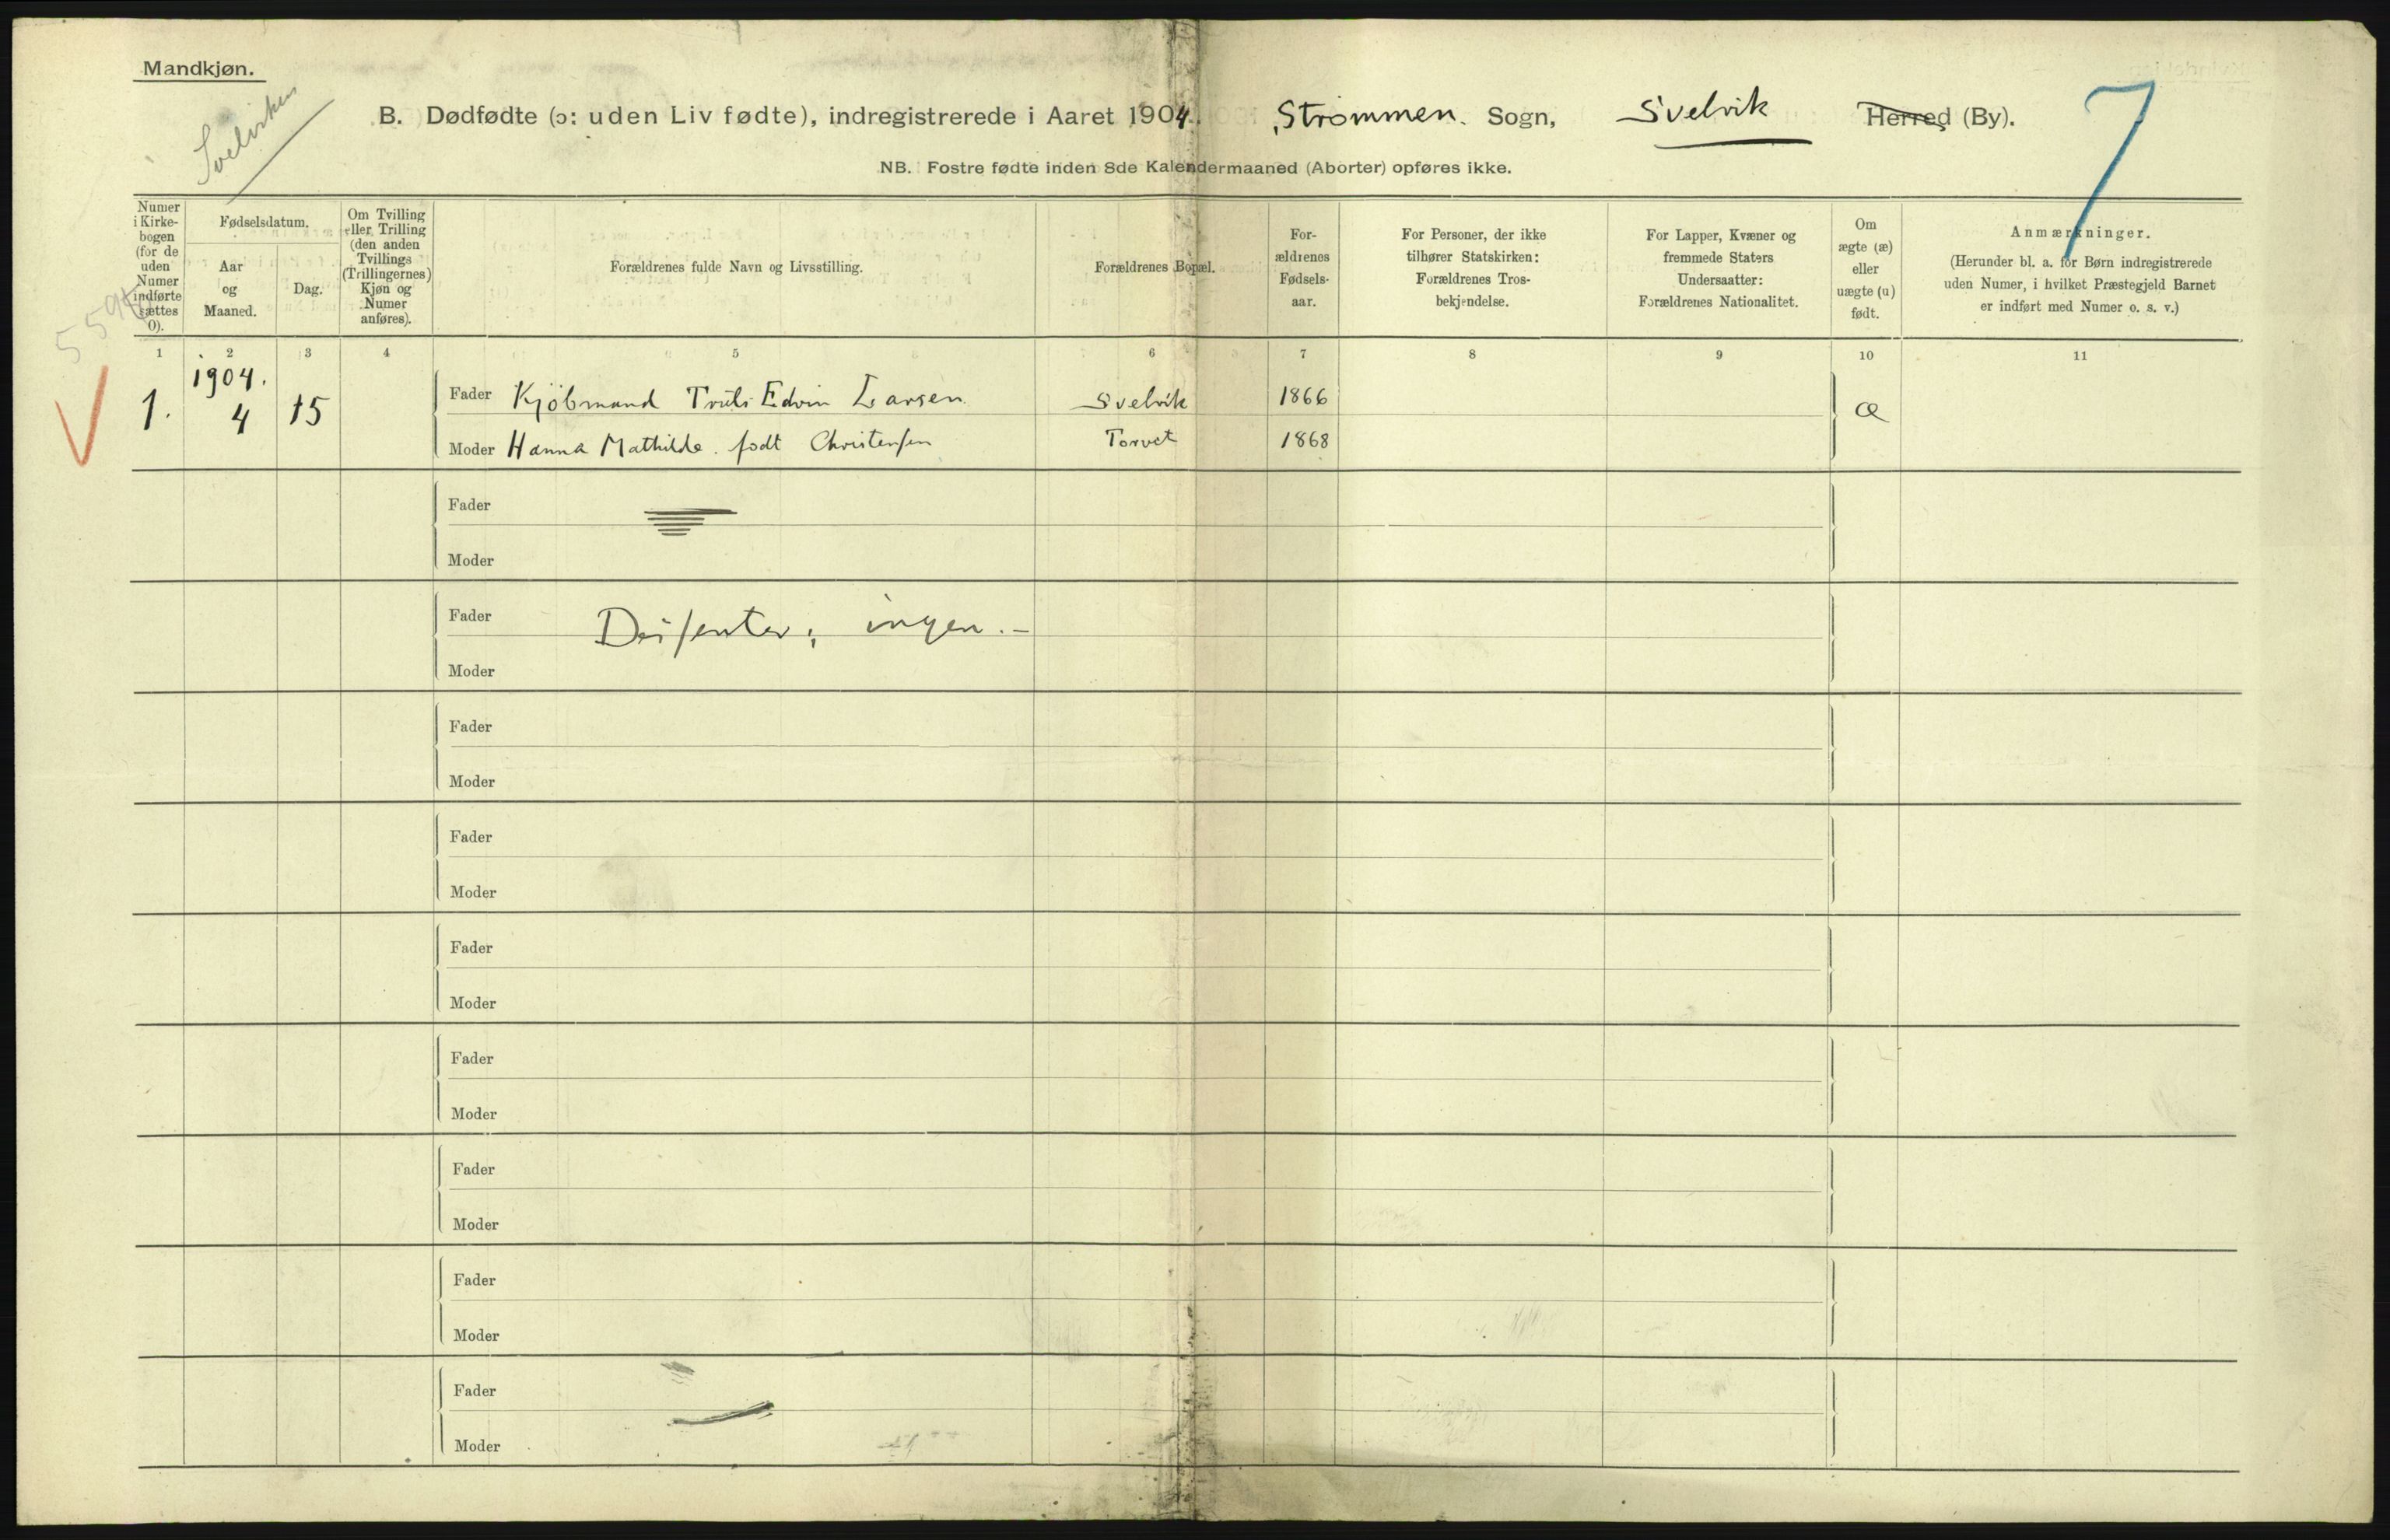 Mandkjøn.
Svelviken
B. Dødfødte (ɔ: uden Liv fødte), indregistrerede i Aaret 1904. Strømmen. Sogn, Svelvik Herred (By).
7
NB. Fostre fødte inden 8de Kalendermaaned (Aborter) opføres ikke.
Numer i Kirke-bogen (for de uden Numer indførte sættes 0).
Fødselsdatum.
Aar og Maaned.
Dag.
Om Tvilling eller Trilling (den anden Tvillings (Trillingernes) Kjøn og Numer anføres).
Forældrenes fulde Navn og Livsstilling.
Forældrenes Bopæl.
For-ældrenes Fødsels-aar.
For Personer, der ikke tilhører Statskirken: Forældrenes Tros-bekjendelse.
For Lapper, Kvæner og fremmede Staters Undersaatter: Forældrenes Nationalitet.
Om ægte (æ) eller uægte (u) født.
Anmærkninger.
(Herunder bl. a. for Børn indregistrerede uden Numer, i hvilket Præstegjeld Barnet er indført med Numer o. s. v.)
1 2 3 4 5 6 7 8 9 10 11
1904.
1. 4 15
Fader Kjöbmand Truls Edvin Larsen Svelvik 1866 æ
Moder Hanna Mathilde. født Christensen Torvet 1868
Fader
Moder
Fader Dissenter; ingen. –
Moder
Fader
Moder
Fader
Moder
Fader
Moder
Fader
Moder
Fader
Moder
Fader
Moder
Fader
Moder